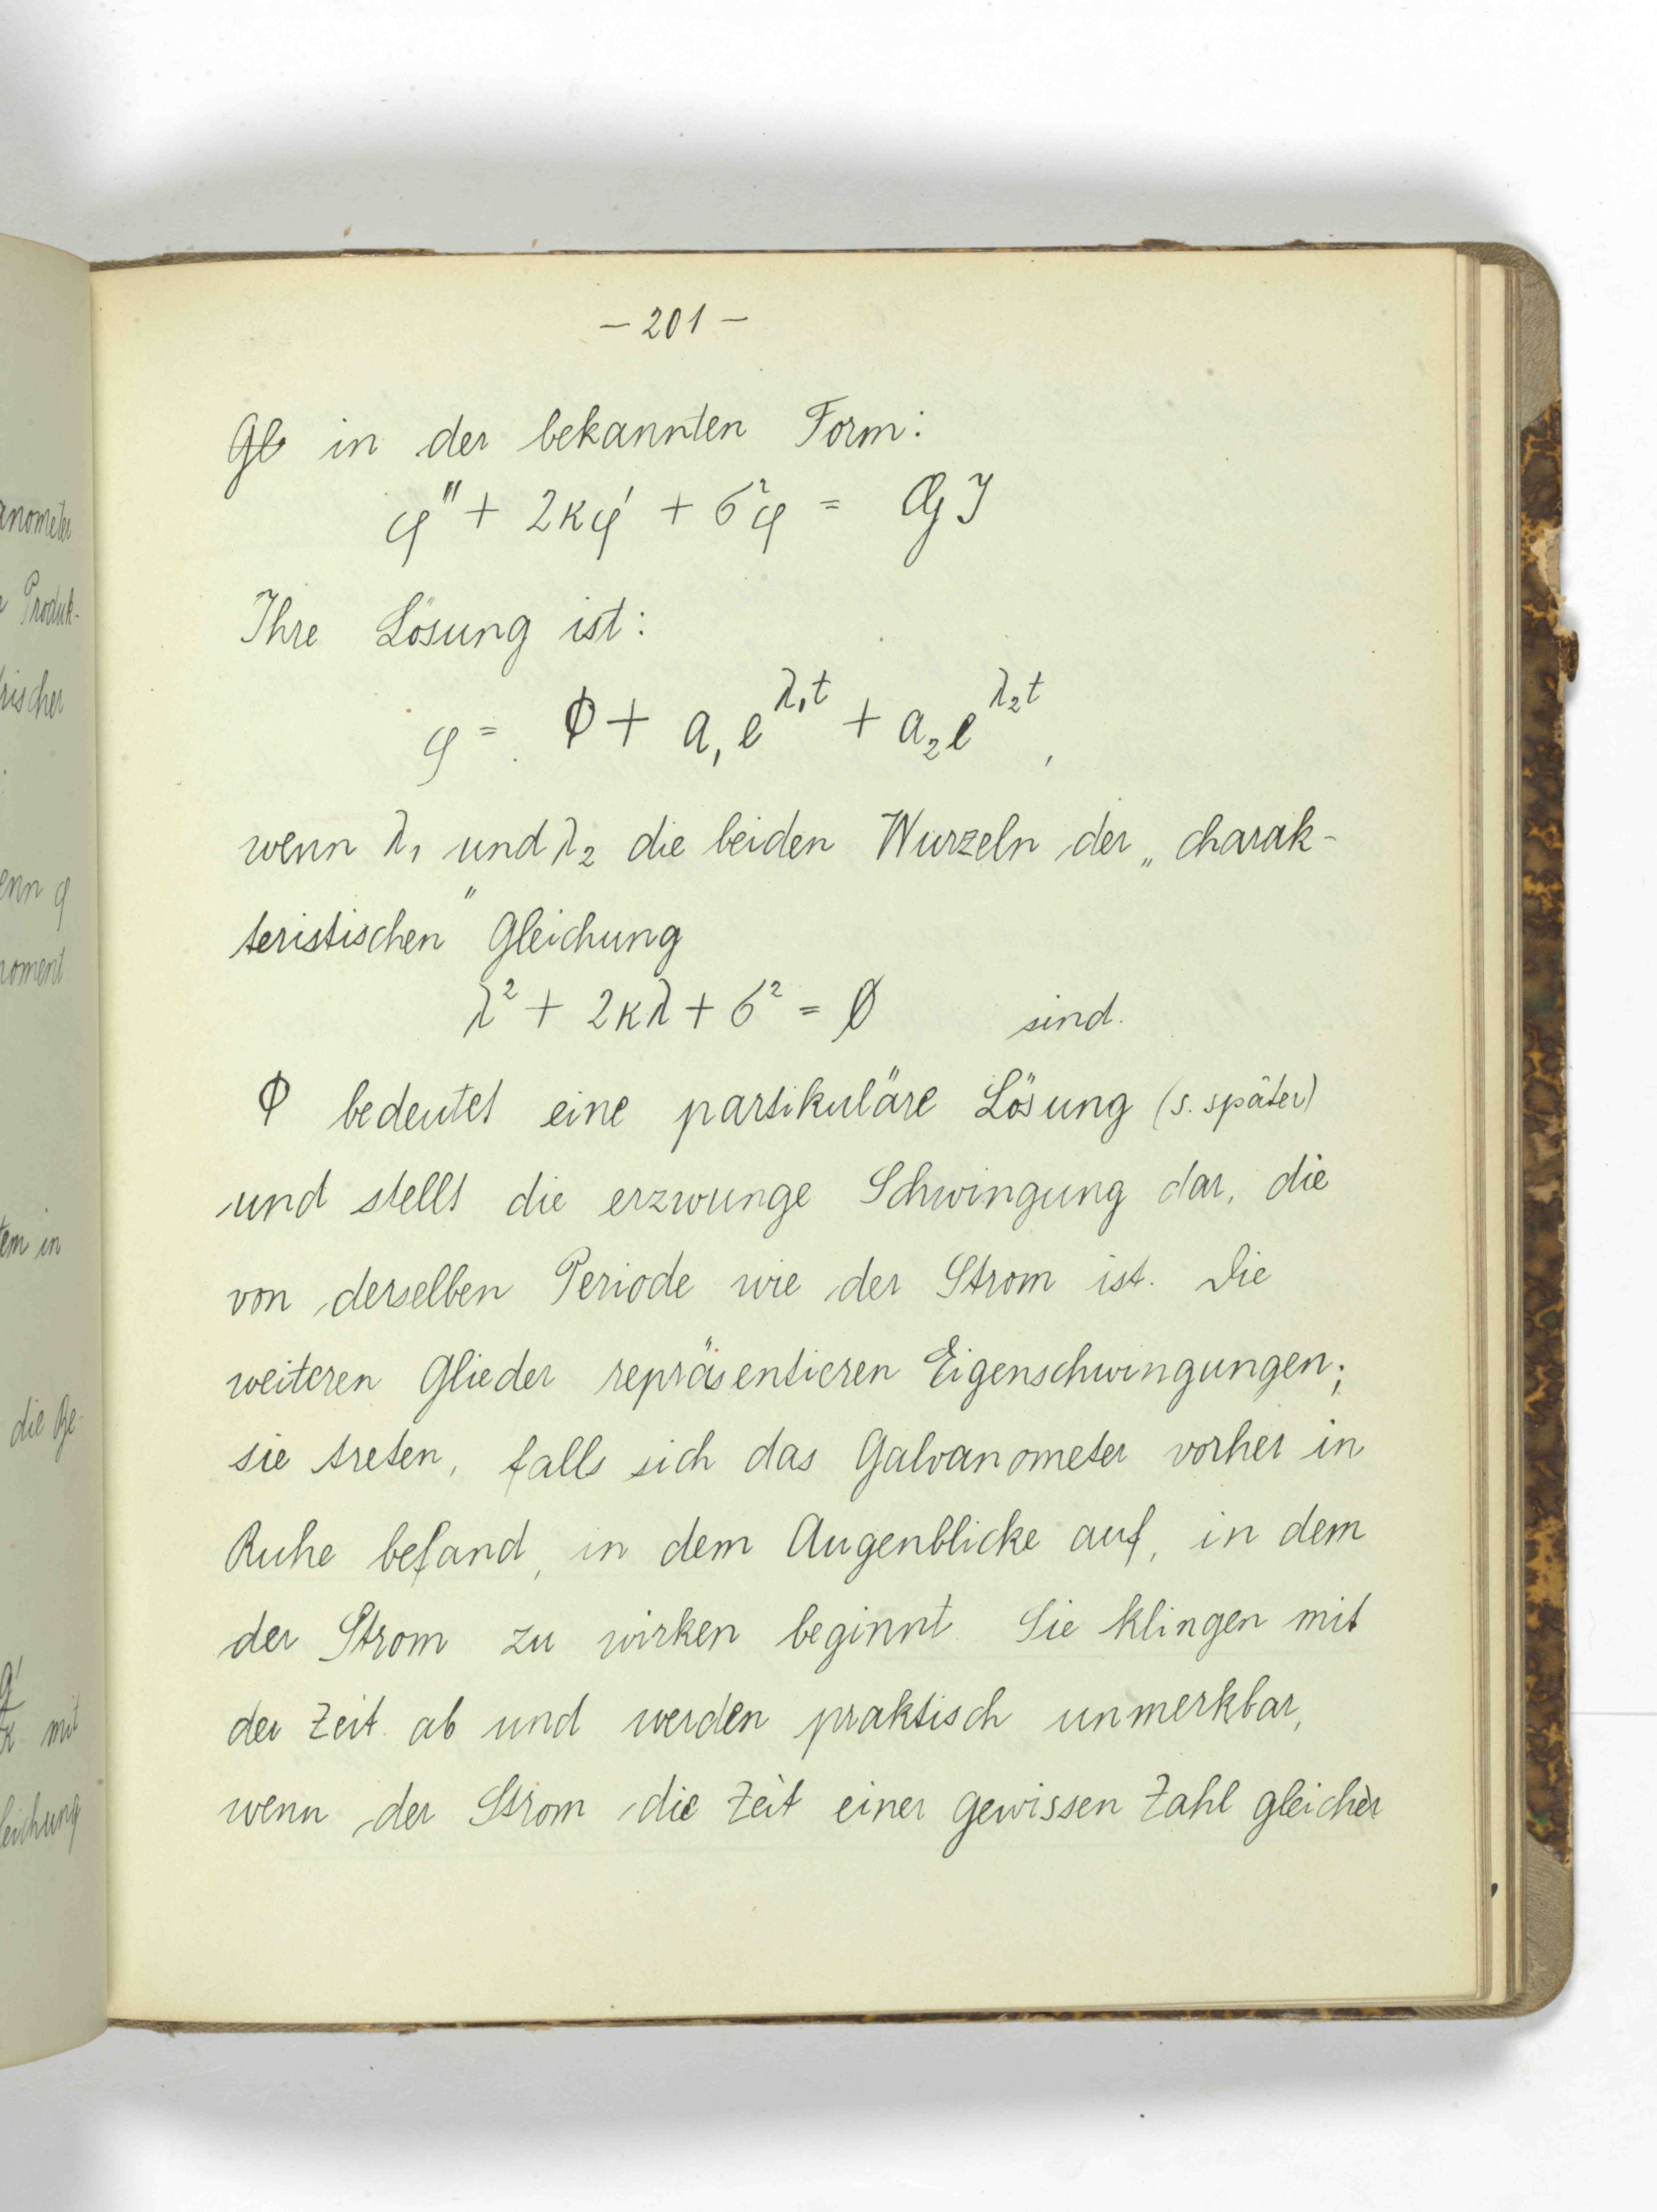 — 201 —
Gl in der bekannten Form:
φ'' + 2κφ' + σ²φ = GJ
Ihre Lösung ist:
φ = Φ + a₁e^λ₁t + a₂e^λ₂t,
wenn λ₁ und λ₂ die beiden Wurzeln der „charak-
teristischen" Gleichung
λ² + 2κλ + σ² = 0 sind.
Φ bedeutet eine partikuläre Lösung (s. später)
und stellt die erzwunge Schwingung dar, die
von derselben Periode wie der Strom ist. Die
weiteren Glieder repräsentieren Eigenschwingungen;
sie treten, falls sich das Galvanometer vorher in
Ruhe befand, in dem Augenblicke auf, in dem
der Strom zu wirken beginnt. Sie klingen mit
der Zeit ab und werden praktisch unmerkbar,
wenn der Strom die Zeit einer gewissen Zahl gleicher